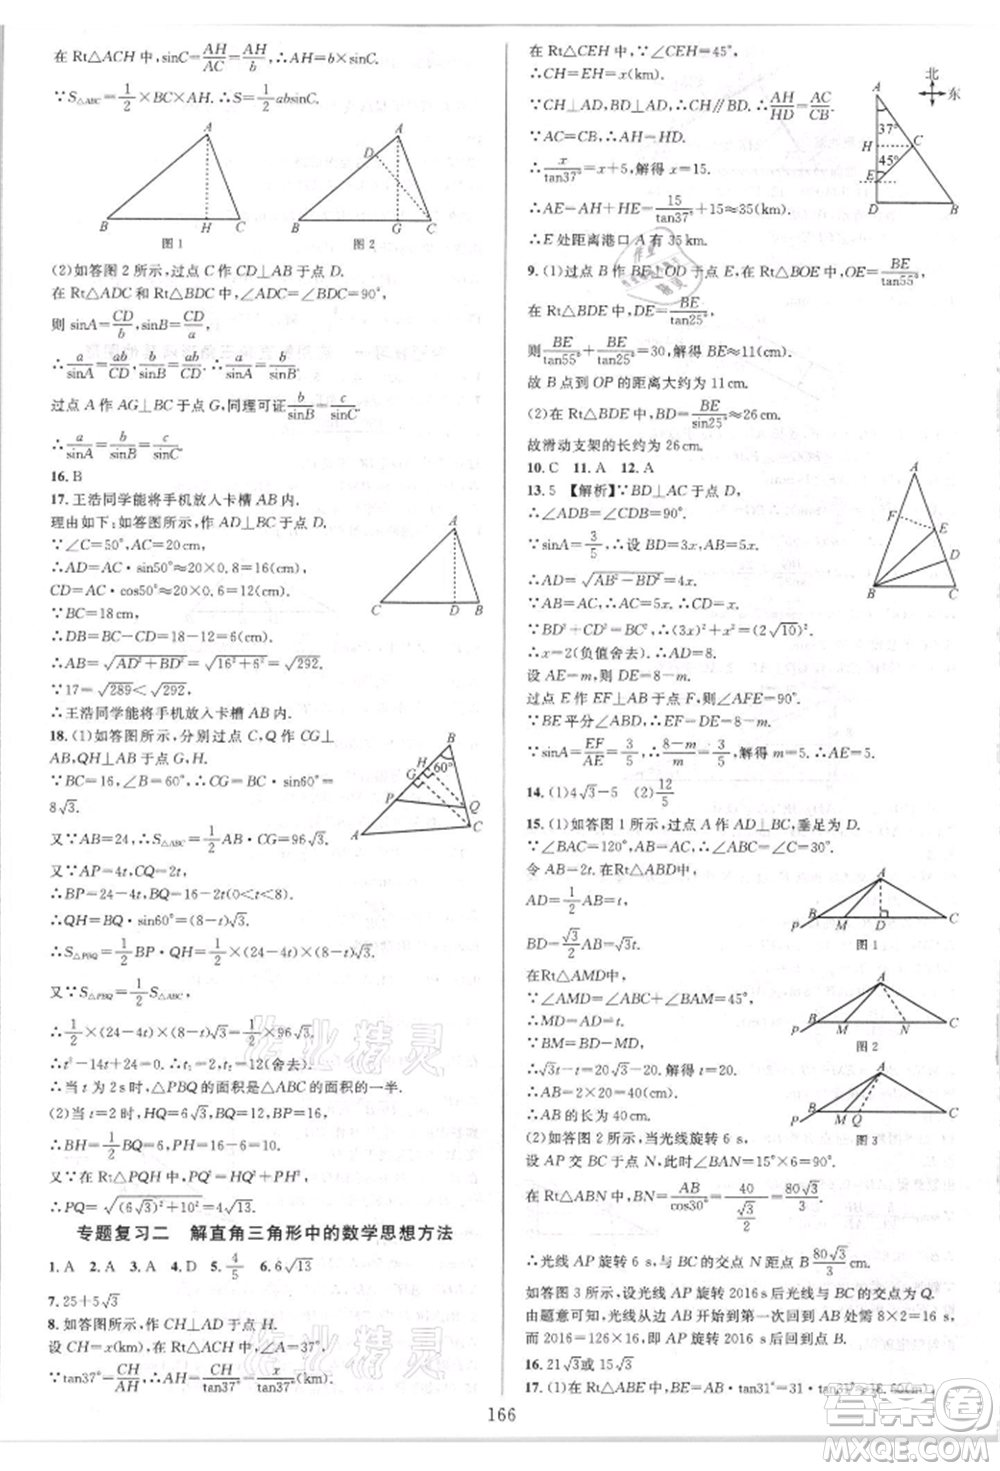 在 Rt△ACH 中,sinC=AH/AC=AH/b,∴AH=b×sinC.
∵S△ABC=1/2×BC×AH,∴S=1/2absinC.
A
B H C
图 1
A
D
B G C
图 2
(2)如答图 2 所示,过点 C 作 CD⊥AB 于点 D.
在 Rt△ADC 和 Rt△BDC 中,∠ADC=∠BDC=90°,
则 sinA=CD/b,sinB=CD/a.
∴a/sinA=ab/CD,b/sinB=ab/CD.∴a/sinA=b/sinB.
过点 A 作 AG⊥BC 于点 G,同理可证b/sinB=c/sinC.
∴a/sinA=b/sinB=c/sinC.
16.B
17.王浩同学能将手机放入卡槽 AB 内.
理由如下:如答图所示,作 AD⊥BC 于点 D.
∵∠C=50°,AC=20cm,
∴AD=AC·sin50°≈20×0.8=16(cm),
CD=AC·cos50°≈20×0.6=12(cm).
∵BC=18cm,
∴DB=BC-CD=18-12=6(cm).
∴AB=√(AD²+BD²)=√(16²+6²)=√292.
∵17=√289<√292,
∴王浩同学能将手机放入卡槽 AB 内.
A
C D B
18.(1)如答图所示,分别过点 C,Q 作 CG⊥
AB,QH⊥AB,垂足为点 G,H.
∵BC=16,∠B=60°,∴CG=BC·sin60°=
8√3.
又∵AB=24,∴S△ABC=1/2AB·CG=96√3.
又∵AP=4t,CQ=2t,
∴BP=24-4t,BQ=16-2t(0<t<6).
∴QH=BQ·sin60°=(8-t)√3.
∴S△PBQ=1/2BP·QH=1/2×(24-4t)×(8-t)√3.
又∵S△PBQ=1/2S△ABC,
∴1/2×(24-4t)×(8-t)√3=1/2×96√3.
∴t²-14t+24=0.∴t₁=2,t₂=12(舍去).
∴当 t 为 2s 时,△PBQ 的面积是△ABC 的一半.
(2)当 t=2 时,HQ=6√3,BQ=12,BP=16,
∴BH=1/2BQ=6,PH=16-6=10.
又∵在 Rt△PQH 中,PQ²=HQ²+PH²,
∴PQ=√((6√3)²+10²)=4√13.
B
H
G 60°
P
Q
A C
专题复习二 解直角三角形中的数学思想方法
1.A 2.A 3.A 4.D 5.4/5 6.6√13
7.25+5√3
8.如答图所示,作 CH⊥AD 于点 H.
设 CH=x(km),在 Rt△ACH 中,∠A=37°,
∵tan37°=CH/AH,∴AH=CH/tan37°=x/tan37°(km).
在 Rt△CEH 中,∵∠CEH=45°,
∴CH=EH=x(km).
∵CH⊥AD,BD⊥AD,∴CH∥BD.∴AH/HD=AC/CB.
∵AC=CB,∴AH=HD.
∴x/tan37°=x+5,解得 x≈15.
∴AE=AH+HE=15/tan37°+15≈35(km).
∴E 处距离港口 A 有 35km.
北
东
A
37°
H C
45°
E
D B
9.(1)过点 B 作 BE⊥OD 于点 E,在 Rt△BOE 中,OE=BE/tan55°,
在 Rt△BDE 中,DE=BE/tan25°,
则BE/tan55°+BE/tan25°=30,解得 BE≈11(cm).
故 B 点到 OP 的距离大约为 11cm.
(2)在 Rt△BDE 中,BD=BE/sin25°≈26cm.
故滑动支架的长约为 26cm.
10.C 11.A 12.A
13.5 【解析】∵BD⊥AC 于点 D,
∴∠ADB=∠CDB=90°.
∵sinA=3/5,∴设 BD=3x,AB=AC=5x.
∴AD=√(AB²-BD²)=4x.
∴CD=AC-AD=x.
∵BD²+CD²=BC²,∴(3x)²+x²=(2√10)².
∴x=2(负值舍去).∴AD=8.
设 AE=m,则 DE=8-m.
过点 E 作 EF⊥AB 于点 F,则∠AFE=90°.
∵BE 平分∠ABD,∴EF=DE=8-m.
∵sinA=EF/AE=3/5,∴(8-m)/m=3/5,解得 m=5.∴AE=5.
A
F E
D
B C
14.(1)4√3-5 (2)12/5
15.(1)如答图 1 所示,过点 A 作 AD⊥BC,垂足为 D.
∵∠BAC=120°,AB=AC,∴∠ABC=∠C=30°.
令 AB=2t cm.在 Rt△ABD中,
AD=1/2AB=t,
BD=√3/2AB=√3t.
在Rt△AMD中,
∵∠AMD=∠ABC+∠BAM=45°,
∴MD=AD=t.
∵BM=BD-MD,
∴√3t-t=20√3-20.解得 t=20.
∴AB=2×20=40(cm).
∴AB 的长为 40cm.
A
B C
P M D
图 1
A
B C
P M N
图 2
A
B C
P M Q
图 3
(2)如答图 2 所示,当光线旋转 6 s,
设 AP 交 BC 于点 N,此时∠BAN=15°×6=90°.
在 Rt△ABN 中,BN=AB/cos30°=40/(√3/2)=80√3/3.
∴光线 AP 旋转 6 s,与 BC 的交点 N 距点 B 80√3/3cm.
如答图 3 所示,设光线 AP 旋转 2016s后光线与 BC 的交点为 Q.
由题意可知,光线从边 AB 开始到第一次回到 AB 处需 8×2=16 s,
而 2016=126×16,即 AP 旋转 2016 s后回到点 B.
16.21√3或15√3
17.(1)在 Rt△ABE 中,AE=AB·tan31°=31·tan31°≈18.60(cm),
166
作业精灵
作业精灵
答案圈
MXQE.COM